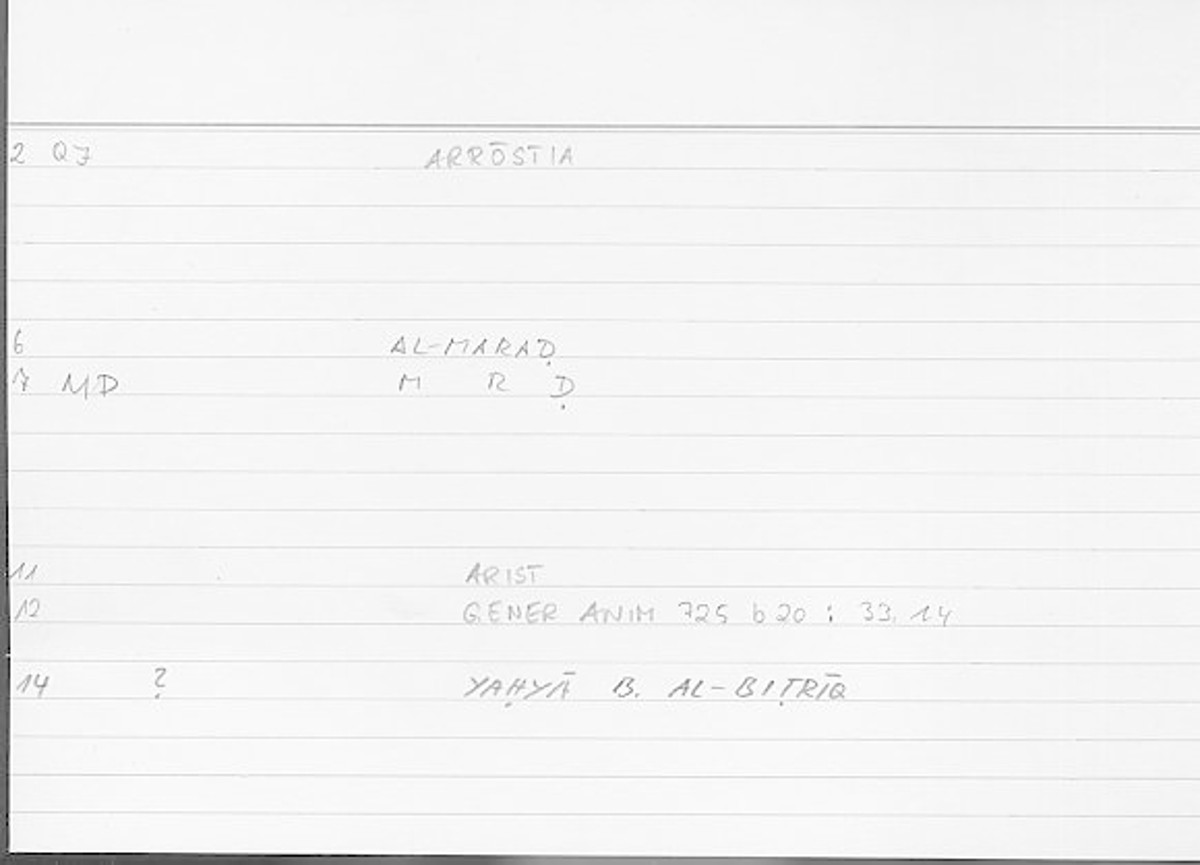 2 Q7 ARRŌSTIA
6 AL-MARAḌ
7 MD M R Ḍ
11 ARIST
12 GENER ANIM 725 b 20 : 33. 14
14 ? YAḤYĀ B. AL-BIṬRĪQ